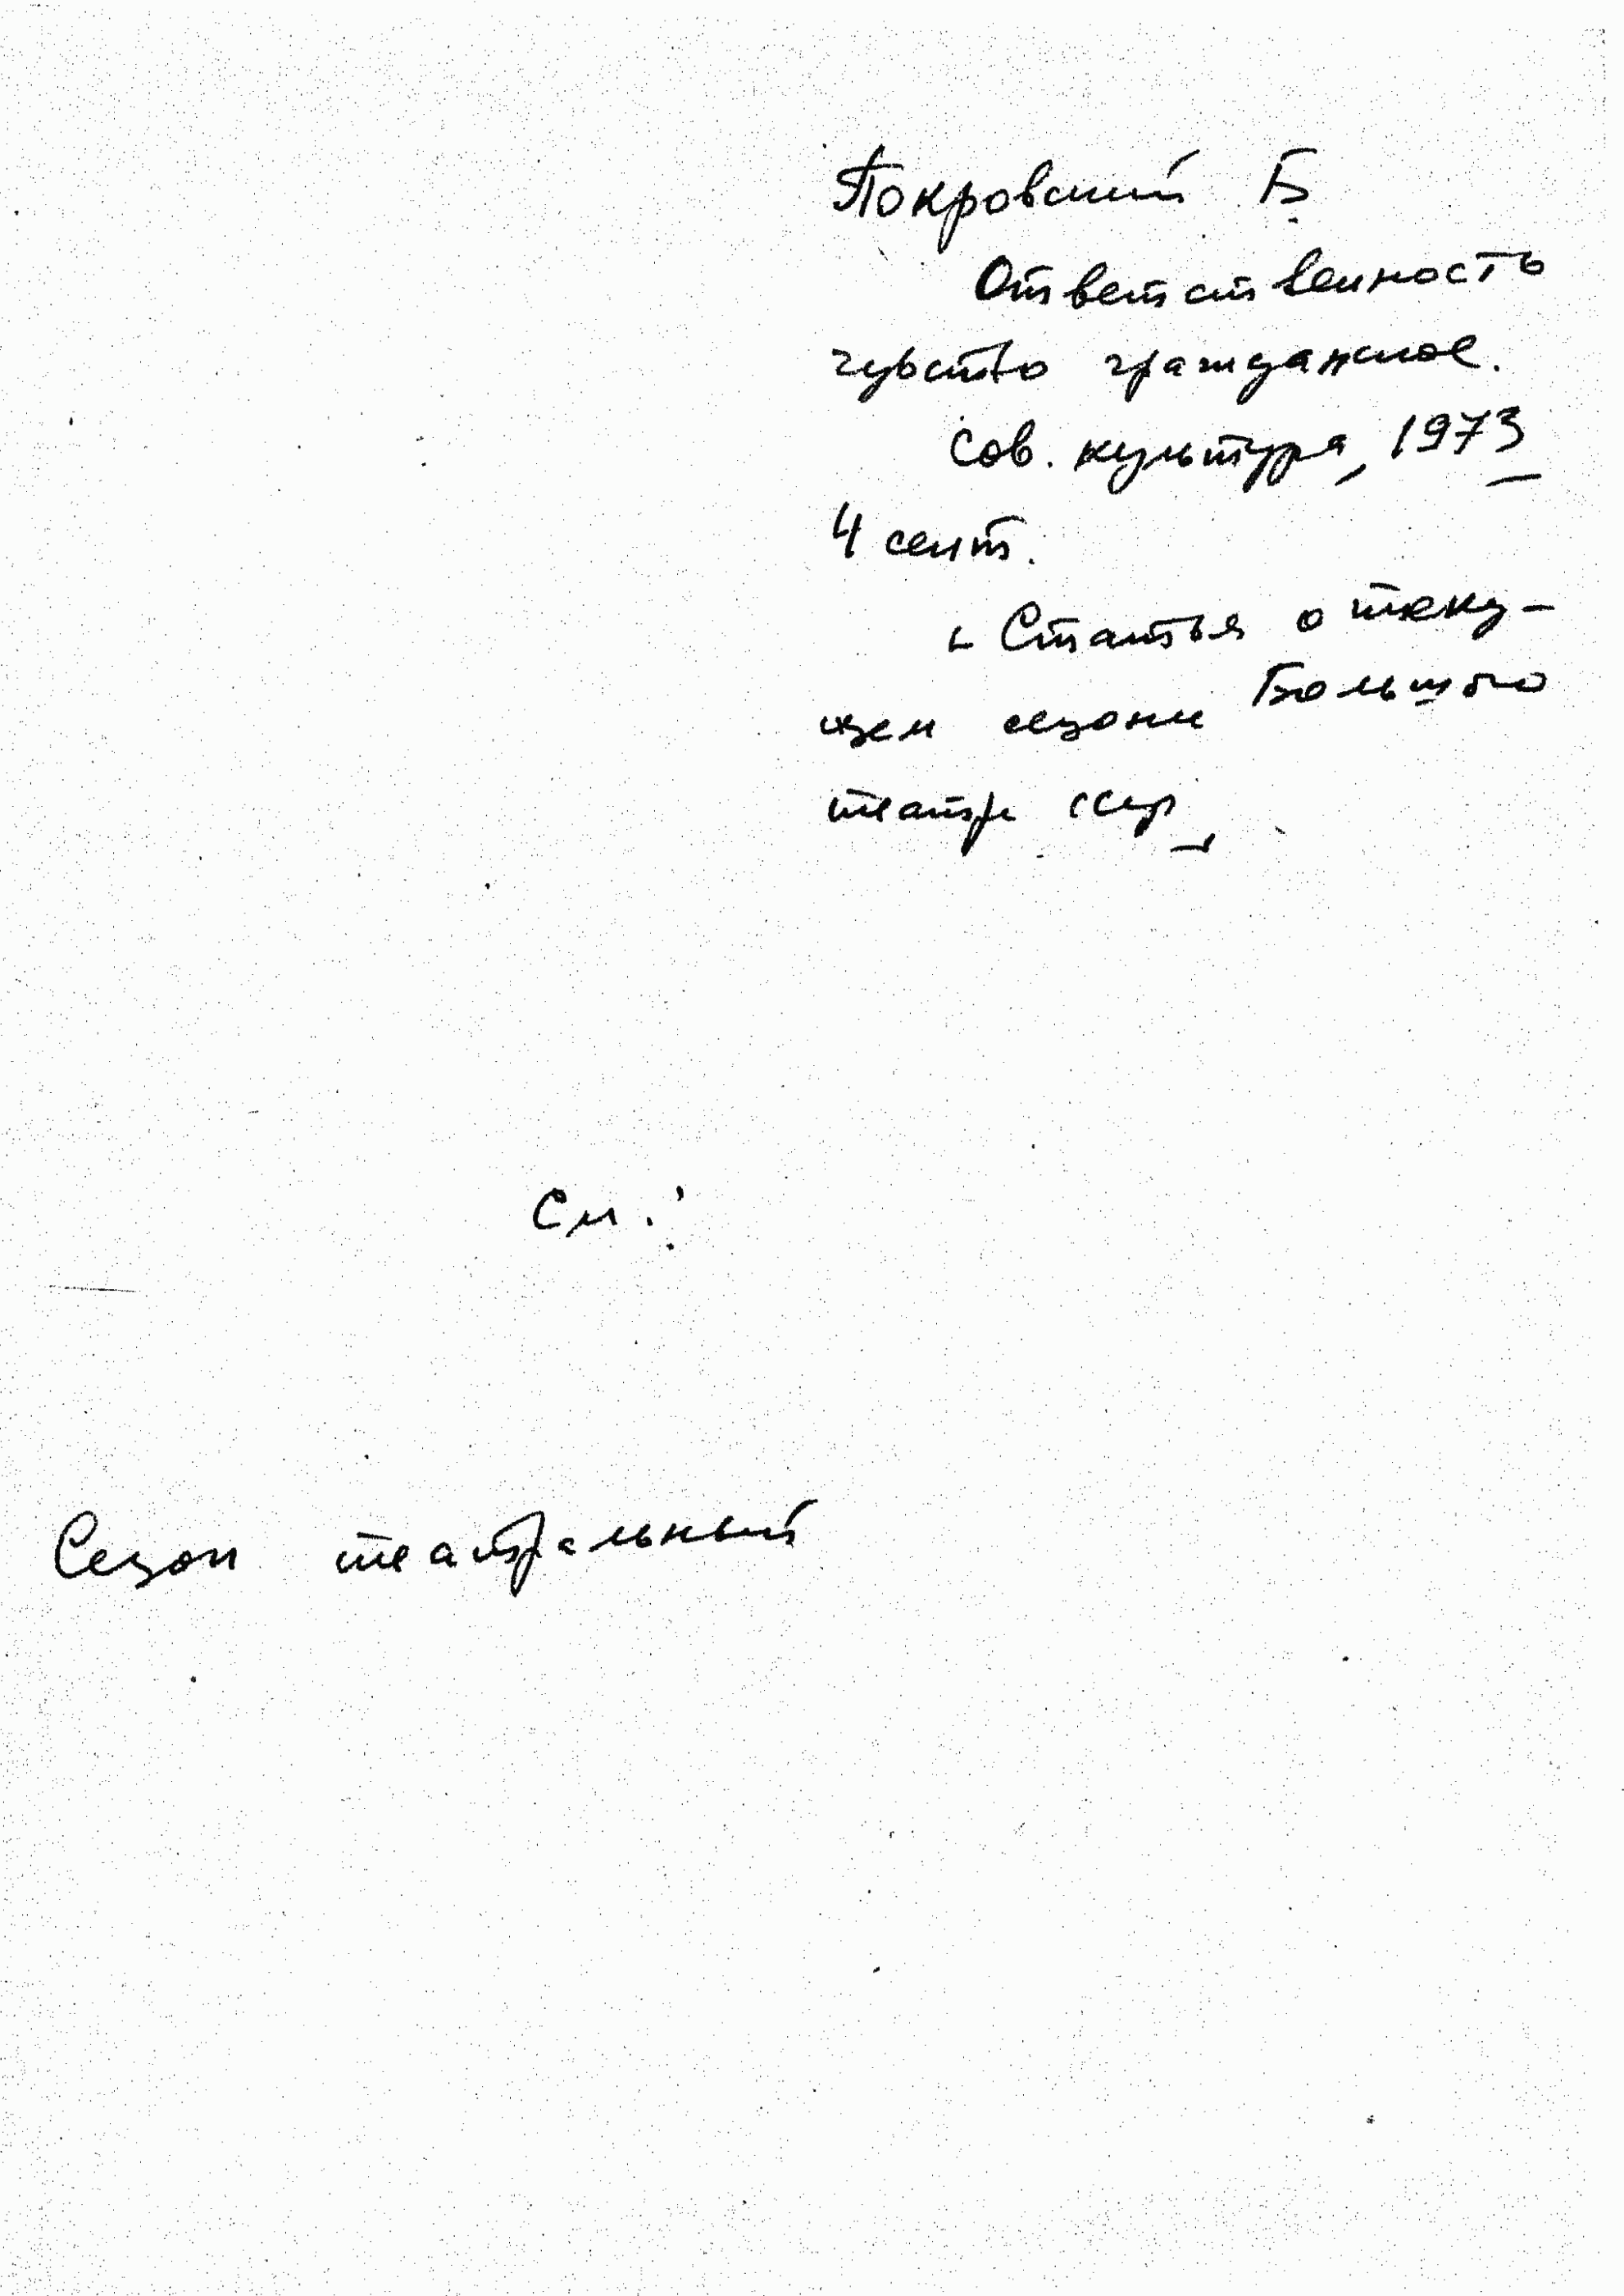 Покровский Б.
Ответственность
чувство гражданское.
Сов. культура, 1973
4 сент.
Статья о теку-
щем сезоне Большого
театра СССР
См.:
Сезон театральный